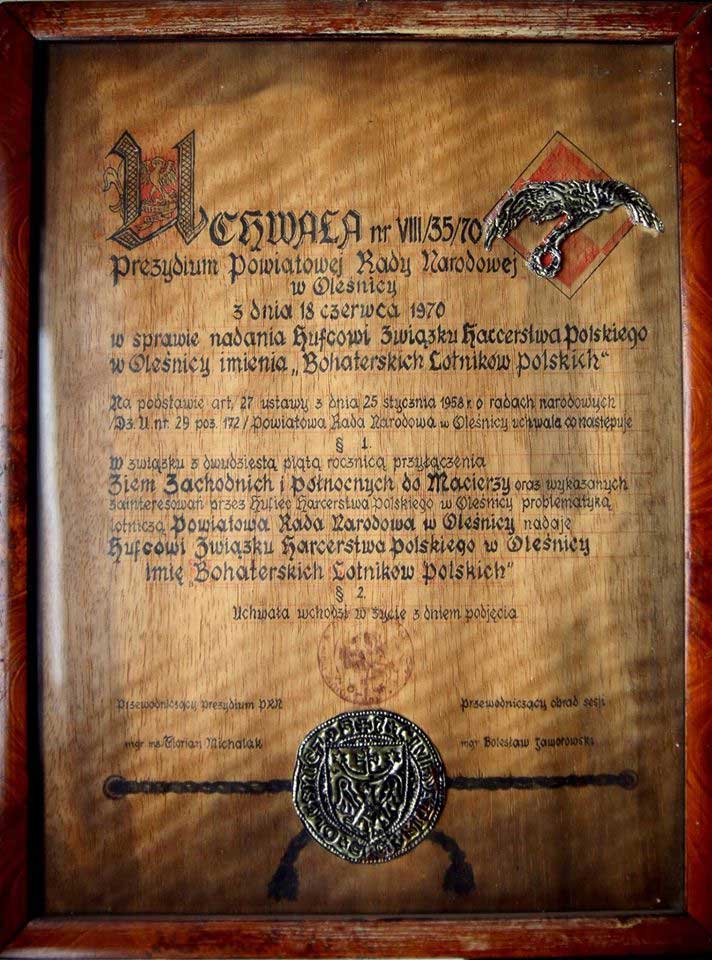 UCHWAŁA nr VIII/35/70
Prezydium Powiatowej Rady Narodowej
w Oleśnicy
z dnia 18 czerwca 1970
w sprawie nadania Hufcowi Związku Harcerstwa Polskiego
w Oleśnicy imienia „Bohaterskich Lotników Polskich"
Na podstawie art. 27 ustawy z dnia 25 stycznia 1958 r. o radach narodowych
/Dz. U. nr. 29 poz. 172/ Powiatowa Rada Narodowa w Oleśnicy uchwala co następuje
§ 1.
W związku z dwudziestą piątą rocznicą przyłączenia
Ziem Zachodnich i Północnych do Macierzy oraz wykazanych
zainteresowań przez Hufiec Harcerstwa Polskiego w Oleśnicy problematyką
lotniczą Powiatowa Rada Narodowa w Oleśnicy nadaje
Hufcowi Związku Harcerstwa Polskiego w Oleśnicy
imię „Bohaterskich Lotników Polskich"
§ 2.
Uchwała wchodzi w życie z dniem podjęcia
Przewodniczący prezydium PRN
przewodniczący obrad sesji
mgr Florian Michalak
mgr Bolesław Jaworowski